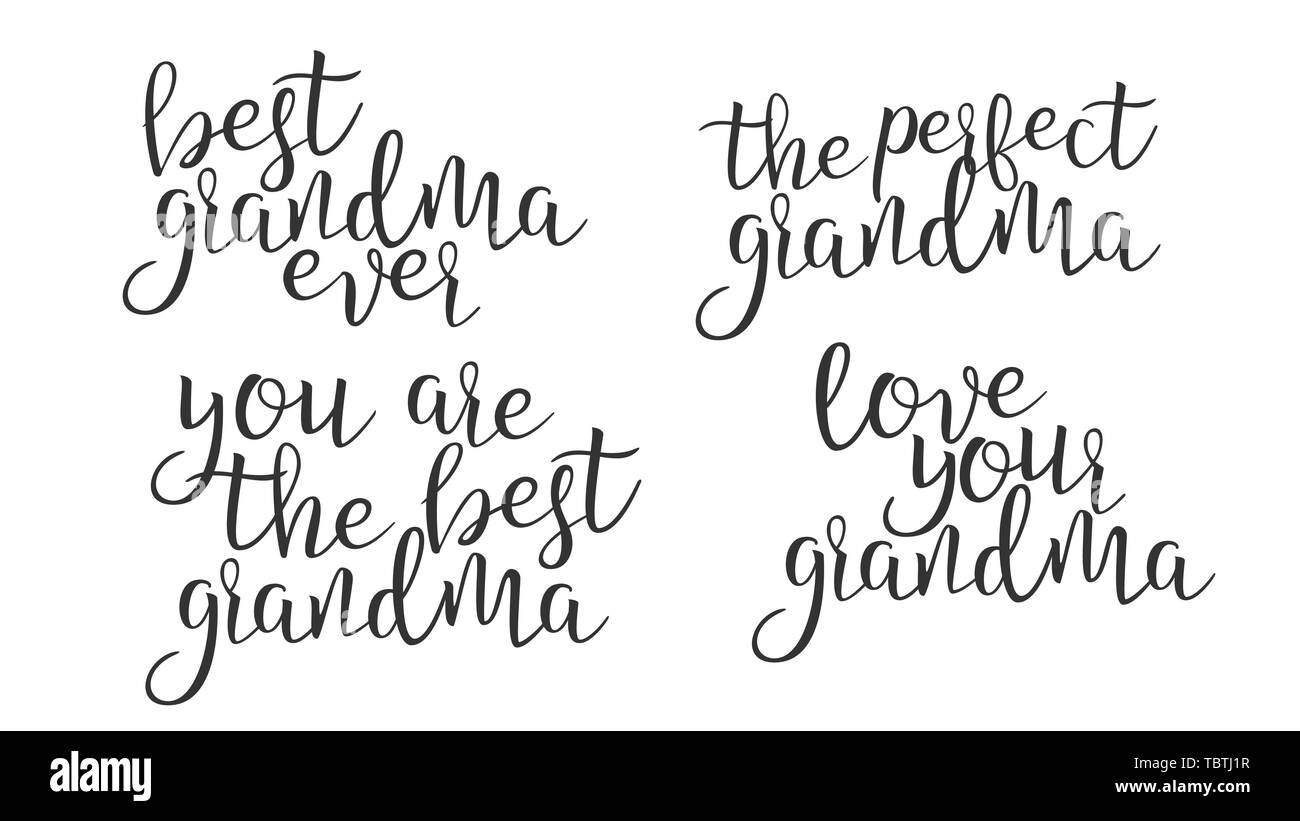 best
grandma
ever
the perfect
grandma
you are
the best
grandma
love
your
grandma
alamy
Image ID: TBTJ1R
www.alamy.com